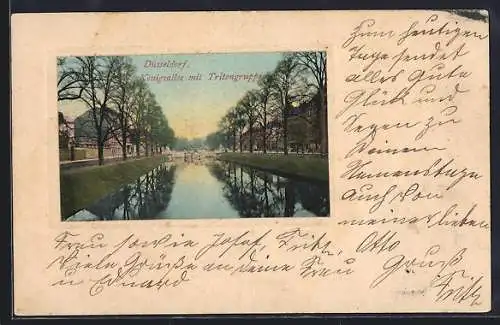 Düsseldorf.
Königsallee mit Tritongruppe
Zum heutigen
Tage sendet
alles Gute
Glück und
Segen zu
Deinem
Namenstage
auch von
meiner lieben
Frau sowie Josef, Fritz, Otto
u Eduard
Viele Grüße an deine Frau
Gruß
Fritz